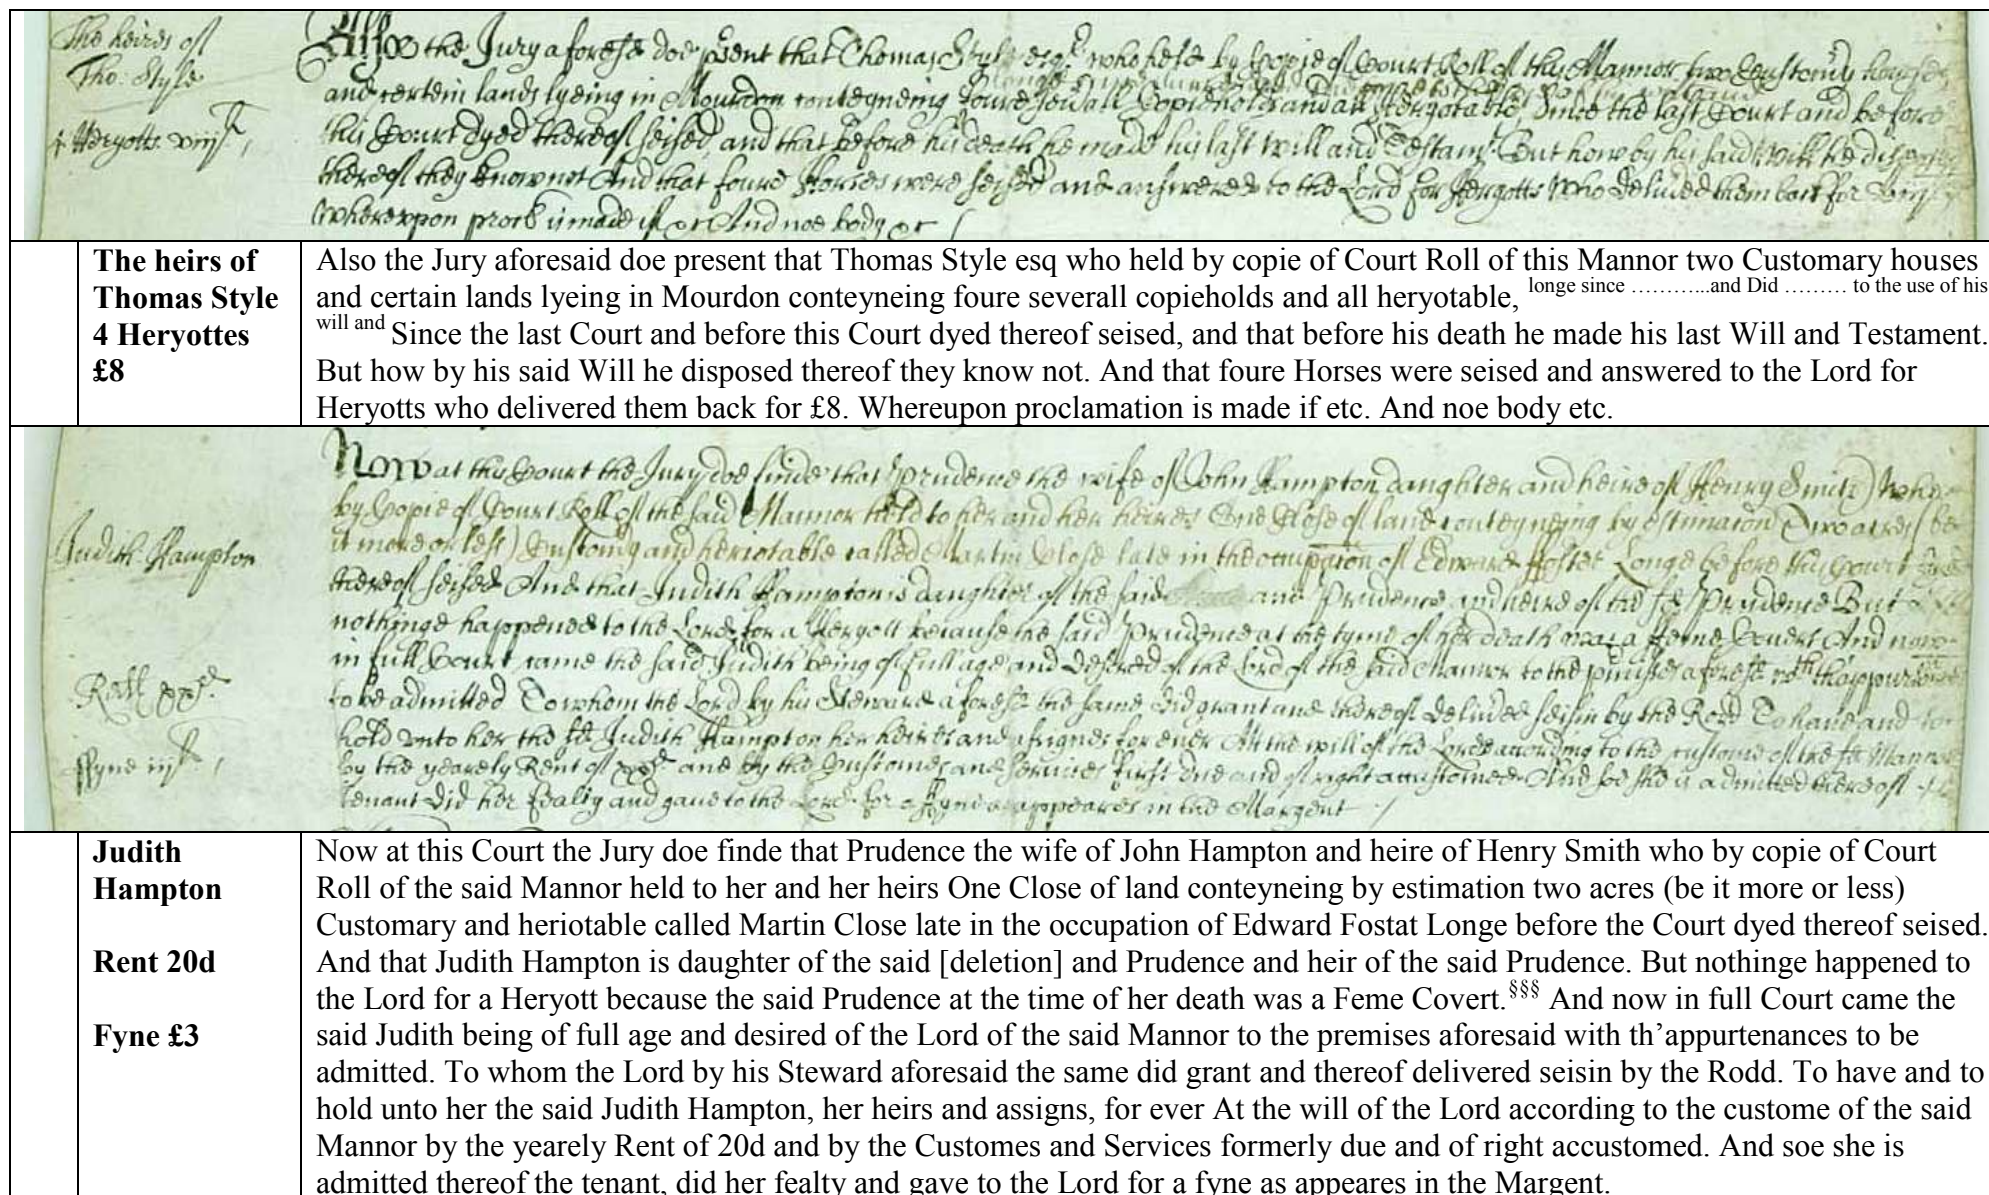 The heires of
Tho: Style
4 Heryotts viij£
Also the Jury aforesd doe psent that Thomas Style esqr who held by Copie of Court Roll of this Mannor two Customy houses
and certein lands lyeing in Mourdon conteyneing foure sevall Copieholds and all Heryotable, Since the last Court and before
this Court dyed thereof seised, and that before his death he made his last will and Testamt. But how by his said Will he disposed
thereof they know not And that foure Horses were seised and answered to the Lord for Heryotts who delived them back for viij£
Whereupon procl is made if &c And noe body &c
The heirs of
Thomas Style
4 Heryottes
£8
Also the Jury aforesaid doe present that Thomas Style esq who held by copie of Court Roll of this Mannor two Customary houses
and certain lands lyeing in Mourdon conteyneing foure severall copieholds and all heryotable, longe since ………...and Did ……… to the use of his
will and Since the last Court and before this Court dyed thereof seised, and that before his death he made his last Will and Testament.
But how by his said Will he disposed thereof they know not. And that foure Horses were seised and answered to the Lord for
Heryotts who delivered them back for £8. Whereupon proclamation is made if etc. And noe body etc.
Judith Hampton
Rent xxd
ffyne iij£
Now at this Court the Jury doe finde that Prudence the wife of John Hampton daughter and heire of Henry Smith) Who
by Copie of Court Roll of the said Mannor held to her and her heires One Close of land conteyneing by estimacon Two acres (be
it more or less) Customy and heriotable called Martin Close late in the occupacon of Edward Longe before this Court dyed
thereof seised And that Judith Hampton is daughter of the said and Prudence and heire of the sd Prudence But
nothinge happened to the Lord for a Heryott because the said Prudence at the tyme of her death was a Feme Covert And now
in full Court came the said Judith being of full age and desired of the Lord of the said Mannor to the pmisses aforesd wth thappurtences
to be admitted To whom the Lord by his Steward aforesd the same did grant and thereof delived seisin by the Rodd To have and to
hold unto her the sd Judith Hampton her heires and assignes for ever At the will of the Lord according to the custome of the sd Mannor
by the yearely Rent of xxd and by the Customes and Services first due and of right accustomed And soe she is admitted thereof
tenant did her fealty and gave to the Lord for a ffyne as appeares in the Margent
Judith
Hampton
Rent 20d
Fyne £3
Now at this Court the Jury doe finde that Prudence the wife of John Hampton and heire of Henry Smith who by copie of Court
Roll of the said Mannor held to her and her heirs One Close of land conteyneing by estimation two acres (be it more or less)
Customary and heriotable called Martin Close late in the occupation of Edward Fostat Longe before the Court dyed thereof seised.
And that Judith Hampton is daughter of the said [deletion] and Prudence and heir of the said Prudence. But nothinge happened to
the Lord for a Heryott because the said Prudence at the time of her death was a Feme Covert.§§§ And now in full Court came the
said Judith being of full age and desired of the Lord of the said Mannor to the premises aforesaid with th’appurtenances to be
admitted. To whom the Lord by his Steward aforesaid the same did grant and thereof delivered seisin by the Rodd. To have and to
hold unto her the said Judith Hampton, her heirs and assigns, for ever At the will of the Lord according to the custome of the said
Mannor by the yearely Rent of 20d and by the Customes and Services formerly due and of right accustomed. And soe she is
admitted thereof the tenant, did her fealty and gave to the Lord for a fyne as appeares in the Margent.